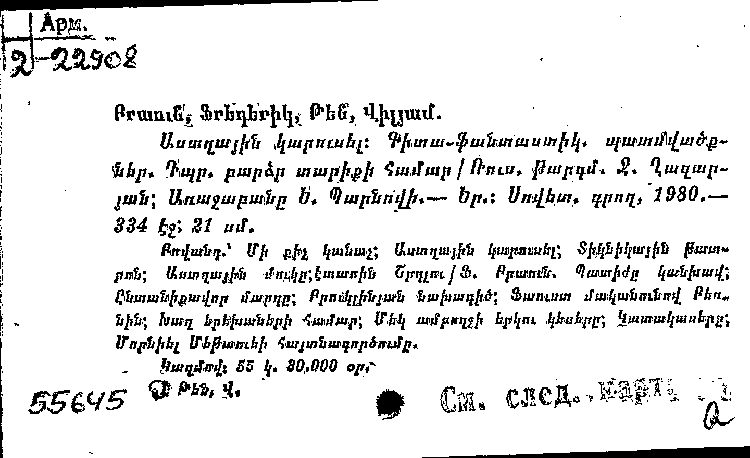 Арм.
2-22908
Բրաուն, Ֆրեդերիկ, Թեն, Վիլյամ.
Աստղային կարուսել: Գիտա-ֆանտաստիկ. պատմվածք-
ներ. Դպր. բարձր տարիքի համար/Ռուս. թարգմ. Զ. Ղազար-
յան; Առաջաբանը Ե. Պարնովի.— Եր.: Սովետ. գրող, 1980.—
334 էջ; 21 սմ.
Բովանդ.՝ Մի քիչ կանաչ; Աստղային կարուսել; Տիկնիկային թատ-
րոն; Աստղային մուկը; էտաոին Շրդլու/Ֆ. Բրաուն. Պատիժը կանխավ;
Ընտանիքավոր մարդը; Բրուկլինյան նախագիծ; Ֆաուստ մականունով Բեռ-
նին; Խաղ երեխաների համար; Մեկ ամբողջի երկու կեսերը; Կատակասերը;
Մորնիել Մեթաուեի հայտնագործումը.
Կազմով. 55 կ. 30,000 օր.
Թեն, Վ.
55645
См. след. карт.